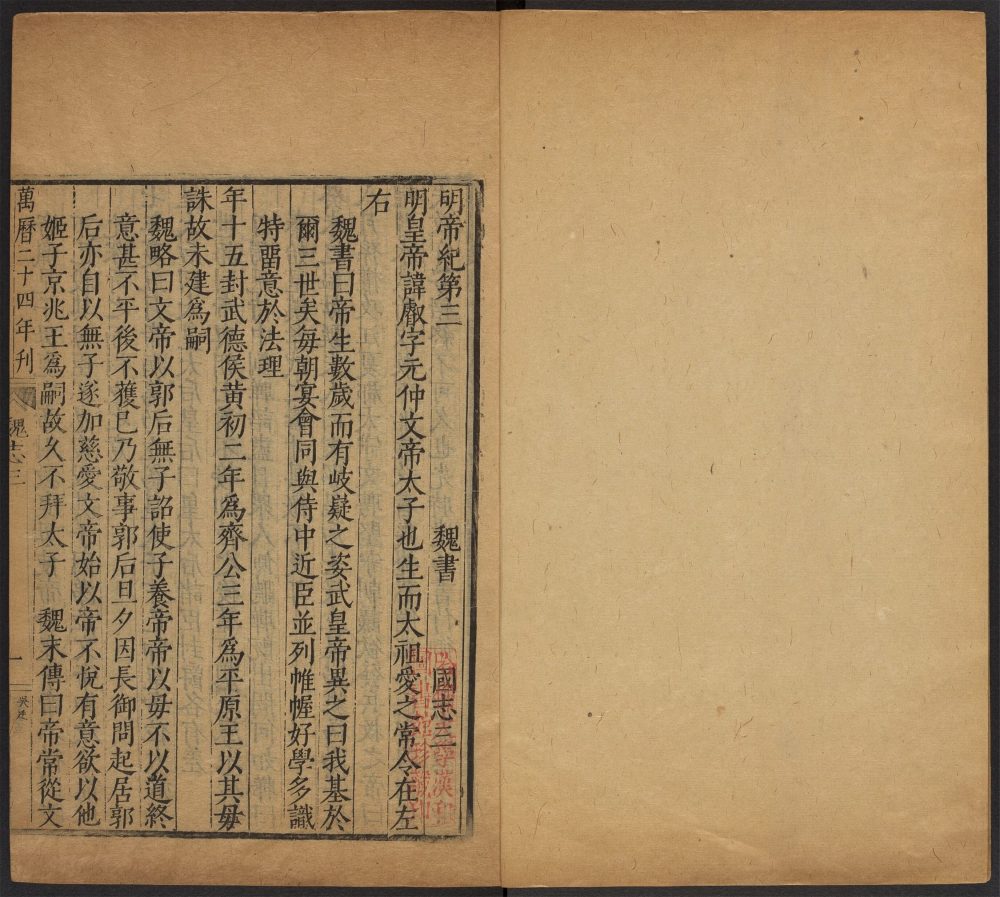 明帝紀第三　魏書　國志三
明皇帝諱叡字元仲文帝太子也生而太祖愛之常令在左
右
魏書曰帝生數歲而有岐嶷之姿武皇帝異之曰我基於
爾三世矣每朝宴會同與侍中近臣並列帷幄好學多識
特留意於法理
年十五封武德侯黃初二年爲齊公三年爲平原王以其母
誅故未建爲嗣
魏略曰文帝以郭后無子詔使子養帝帝以母不以道終
意甚不平後不獲已乃敬事郭后旦夕因長御問起居郭
后亦自以無子遂加慈愛文帝始以帝不悅有意欲以他
姬子京兆王爲嗣故久不拜太子　魏末傳曰帝常從文
萬曆二十四年刊
魏志三
一